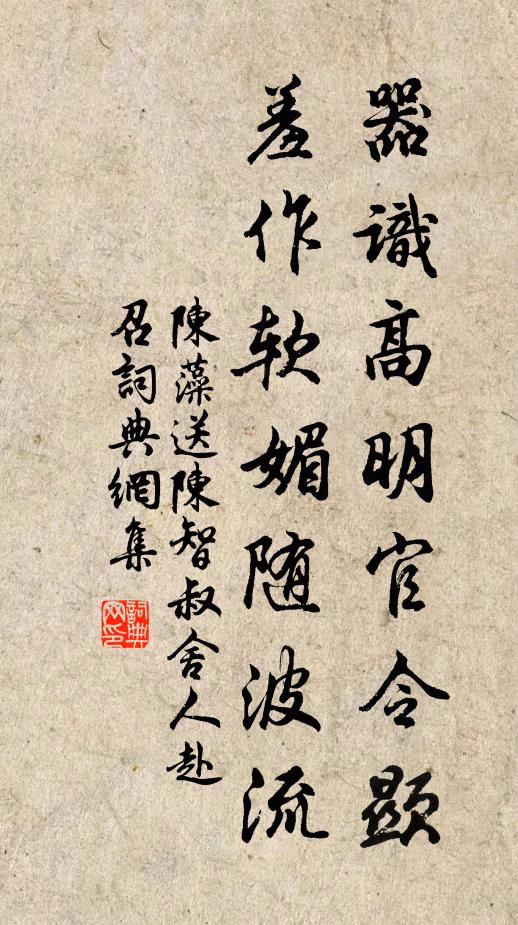 器識高明官令顯
羞作軟媚随波流
陳藻送陳智叔舍人赴
召詞典網集
詞典
网印